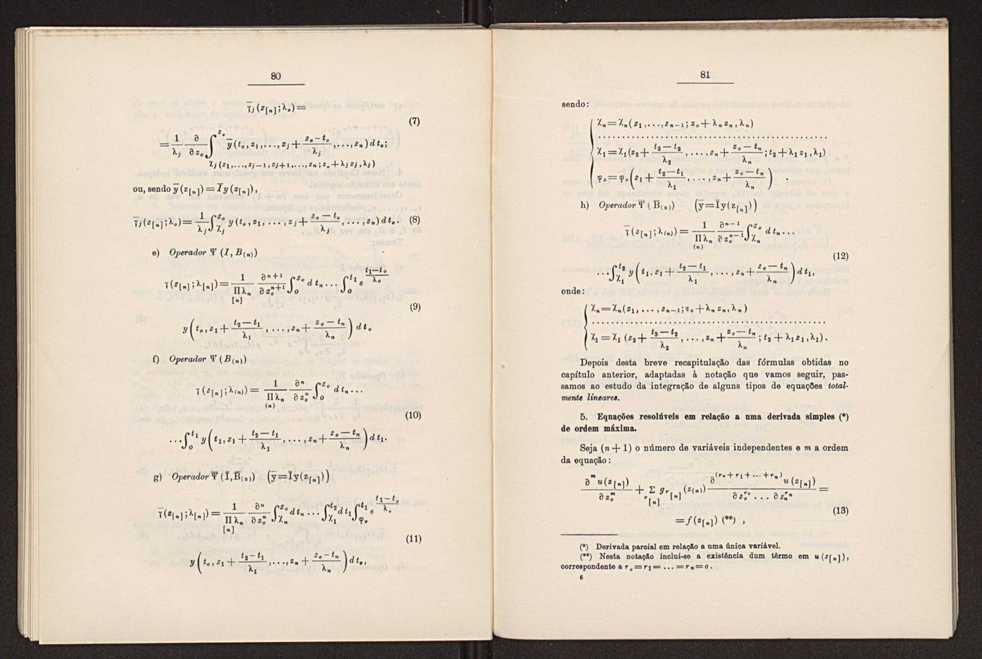 80
γ̅ⱼ(z[n];λₒ)=
(7)
= 1/λⱼ ∂/∂zₒ ∫^{zₒ} y̅(tₒ,z₁,...,zⱼ+ (zₒ−tₒ)/λⱼ ,...,zₙ)dtₒ;
χⱼ(z₁,...,zⱼ₋₁,zⱼ₊₁,...,zₙ;zₒ+λⱼzⱼ,λⱼ)
ou, sendo y̅(z[n])=I̅y(z[n]),
γ̅ⱼ(z[n];λₒ)= 1/λⱼ ∫_{χⱼ}^{zₒ} y(tₒ,z₁,...,zⱼ+ (zₒ−tₒ)/λⱼ ,...,zₙ)dtₒ. (8)
e) Operador Ψ (I, B(n))
γ(z[n];λ[n])= 1/Πλₙ [n] ∂ⁿ⁺¹/∂zₒⁿ⁺¹ ∫_o^{zₒ} dtₙ... ∫_o^{t₁} e^{(t₁−tₒ)/λₒ}
(9)
y(tₒ,z₁+ (t₂−t₁)/λ₁ ,...,zₙ+ (zₒ−tₙ)/λₙ)dtₒ
f) Operador Ψ (B(n))
γ(z[n];λ(n))= 1/Πλₙ (n) ∂ⁿ/∂zₒⁿ ∫_o^{zₒ} dtₙ...
(10)
...∫_o^{t₁} y(t₁,z₁+ (t₂−t₁)/λ₁ ,...,zₙ+ (zₒ−tₙ)/λₙ)dt₁.
g) Operador Ψ̅ (I̅, B̅(n)) (y̅=I̅y(z[n]))
γ̅(z[n];λ[n])= 1/Πλₙ [n] ∂ⁿ/∂zₒⁿ ∫_{χₙ}^{zₒ} dtₙ... ∫_{χ₁}^{t₂} dt₁ ∫_{φₒ}^{t₁} e^{(t₁−tₒ)/λₒ}
(11)
y(tₒ,z₁+ (t₂−t₁)/λ₁ ,...,zₙ+ (zₒ−tₙ)/λₙ)dtₒ,
81
sendo:
χₙ=χₙ(z₁,...,zₙ₋₁;zₒ+λₙzₙ,λₙ)
........................................
χ₁=χ₁(z₂+ (t₃−t₂)/λ₂ ,...,zₙ+ (zₒ−tₙ)/λₙ ;t₂+λ₁z₁,λ₁)
φₒ=φₒ(z₁+ (t₂−t₁)/λ₁ ,...,zₙ+ (zₒ−tₙ)/λₙ) .
h) Operador Ψ̅ (B̅(n)) (y̅=I̅y(z[n]))
γ̅(z[n];λ(n))= 1/Πλₙ (n) ∂ⁿ⁻¹/∂zₒⁿ⁻¹ ∫_{χₙ}^{zₒ} dtₙ...
(12)
...∫_{χ₁}^{t₂} y(t₁,z₁+ (t₂−t₁)/λ₁ ,...,zₙ+ (zₒ−tₙ)/λₙ)dt₁,
onde:
χₙ=χₙ(z₁,...,zₙ₋₁;zₒ+λₙzₙ,λₙ)
........................................
χ₁=χ₁(z₂+ (t₃−t₂)/λ₂ ,...,zₙ+ (zₒ−tₙ)/λₙ ;t₂+λ₁z₁,λ₁).
Depois desta breve recapitulação das fórmulas obtidas no
capítulo anterior, adaptadas à notação que vamos seguir, pas-
samos ao estudo da integração de alguns tipos de equações total-
mente lineares.
5. Equações resolúveis em relação a uma derivada simples (*)
de ordem máxima.
Seja (n+1) o número de variáveis independentes e m a ordem
da equação:
∂ᵐu(z[n])/∂zₒᵐ + Σ_{r[n]} g_{r[n]}(z[n]) ∂^{(rₒ+r₁+...+rₙ)}u(z[n])/∂zₒ^{rₒ}...∂zₙ^{rₙ} =
(13)
=f(z[n]) (**) ,
(*) Derivada parcial em relação a uma única variável.
(**) Nesta notação inclui-se a existência dum têrmo em u(z[n]),
correspondente a rₒ=r₁=...=rₙ=o.
6